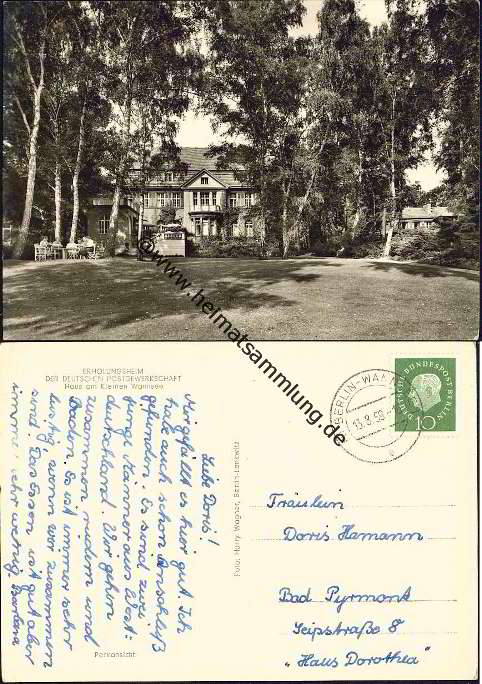 © www.heimatsammlung.de
ERHOLUNGSHEIM
DER DEUTSCHEN POSTGEWERKSCHAFT
Haus am Kleinen Wannsee
Liebe Doris!
Mir gefällt es hier gut. Ich
habe auch schon Anschluß
gefunden. Es sind zwei
junge Männer aus West-
deutschland. Wir gehen
zusammen rudern und
baden. Es ist immer sehr
lustig, wenn wir zusammen
sind. Das Essen ist gut aber
immer sehr wenig. Barbara
Parkansicht
Foto: Harry Wagner, Berlin-Lankwitz
BERLIN-WANNSEE
13.8.59
c
DEUTSCHE BUNDESPOST BERLIN
10
Fräulein
Doris Hamann
Bad Pyrmont
Seipstraße 8
„Haus Dorothea“